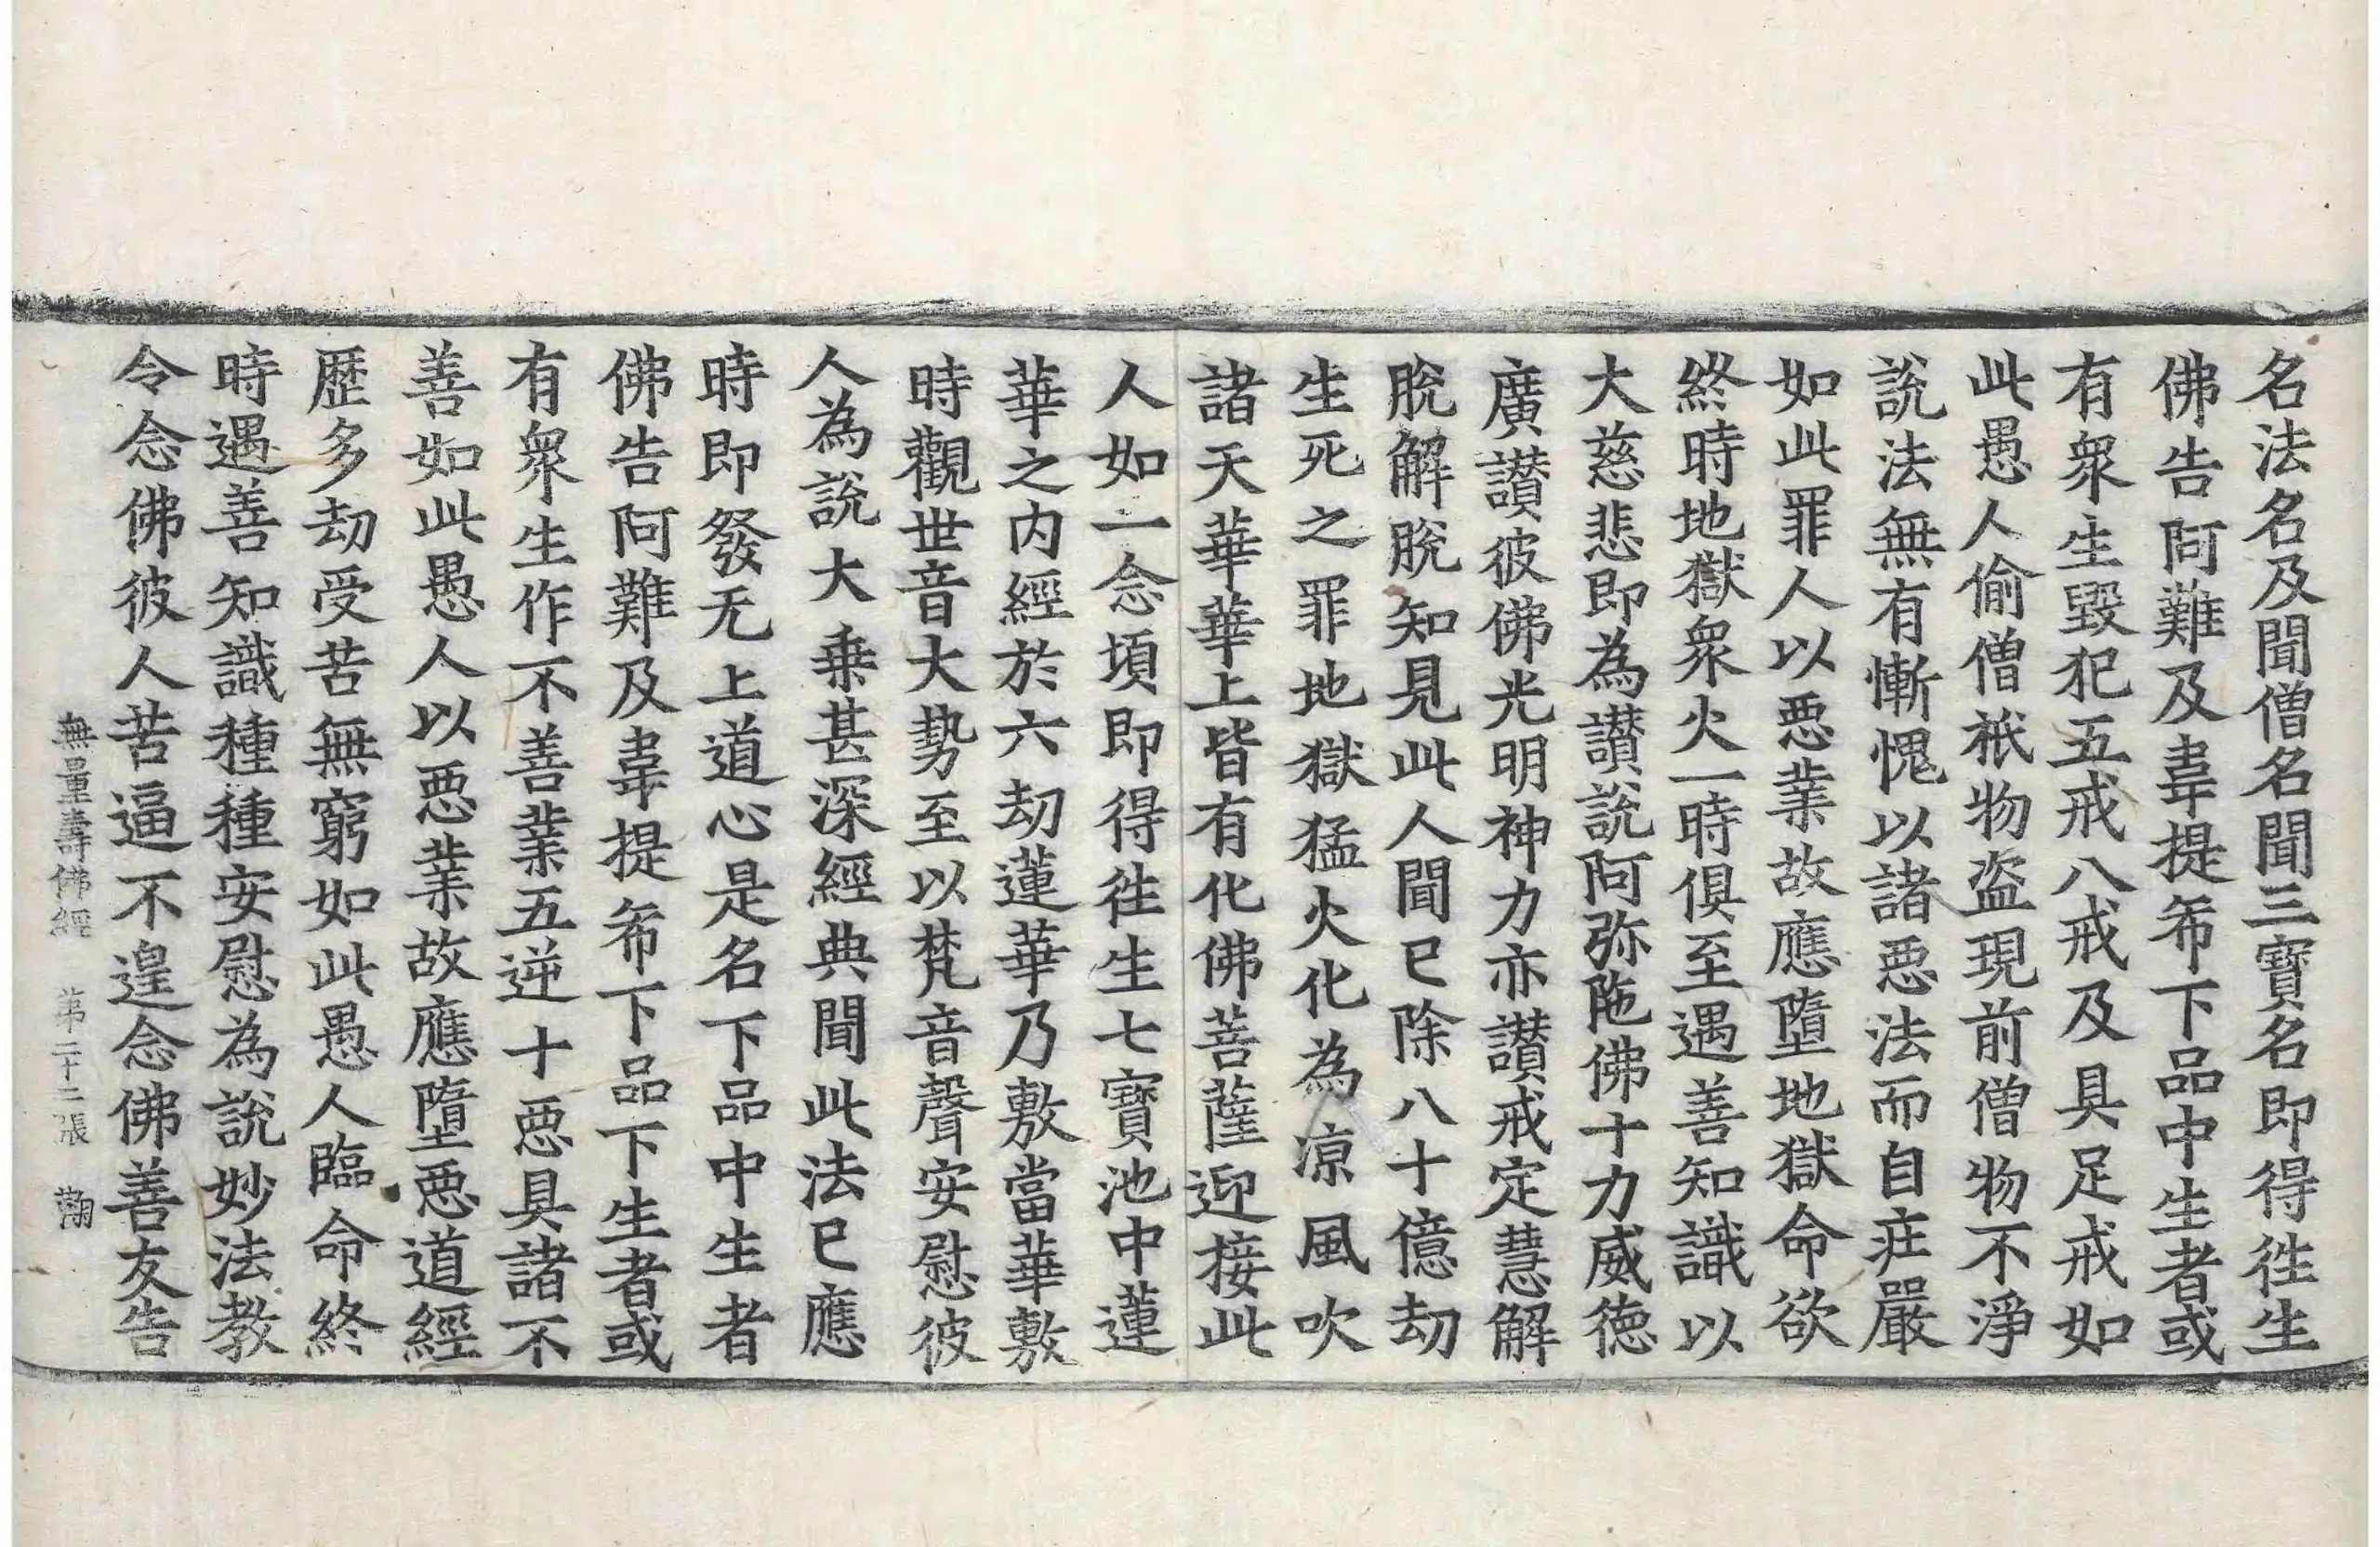 名法名及聞僧名聞三寶名即得徃生
佛告阿難及韋提希下品中生者或
有衆生毀犯五戒八戒及具足戒如
此愚人偷僧祇物盜現前僧物不淨
說法無有慚愧以諸惡法而自莊嚴
如此罪人以惡業故應墮地獄命欲
終時地獄衆火一時俱至遇善知識以
大慈悲即為讃說阿弥陁佛十力威徳
廣讃彼佛光明神力亦讃戒定慧解
脫解脫知見此人聞已除八十億劫
生死之罪地獄猛火化為凉風吹
諸天華華上皆有化佛菩薩迎接此
人如一念頃即得徃生七寶池中蓮
華之内經於六劫蓮華乃敷當華敷
時觀世音大勢至以梵音聲安慰彼
人為說大乗甚深經典聞此法已應
時即發无上道心是名下品中生者
佛告阿難及韋提希下品下生者或
有衆生作不善業五逆十惡具諸不
善如此愚人以惡業故應墮惡道經
歷多劫受苦無窮如此愚人臨命終
時遇善知識種種安慰為說妙法教
令念佛彼人苦逼不遑念佛善友告
無量壽佛經 第二十二張